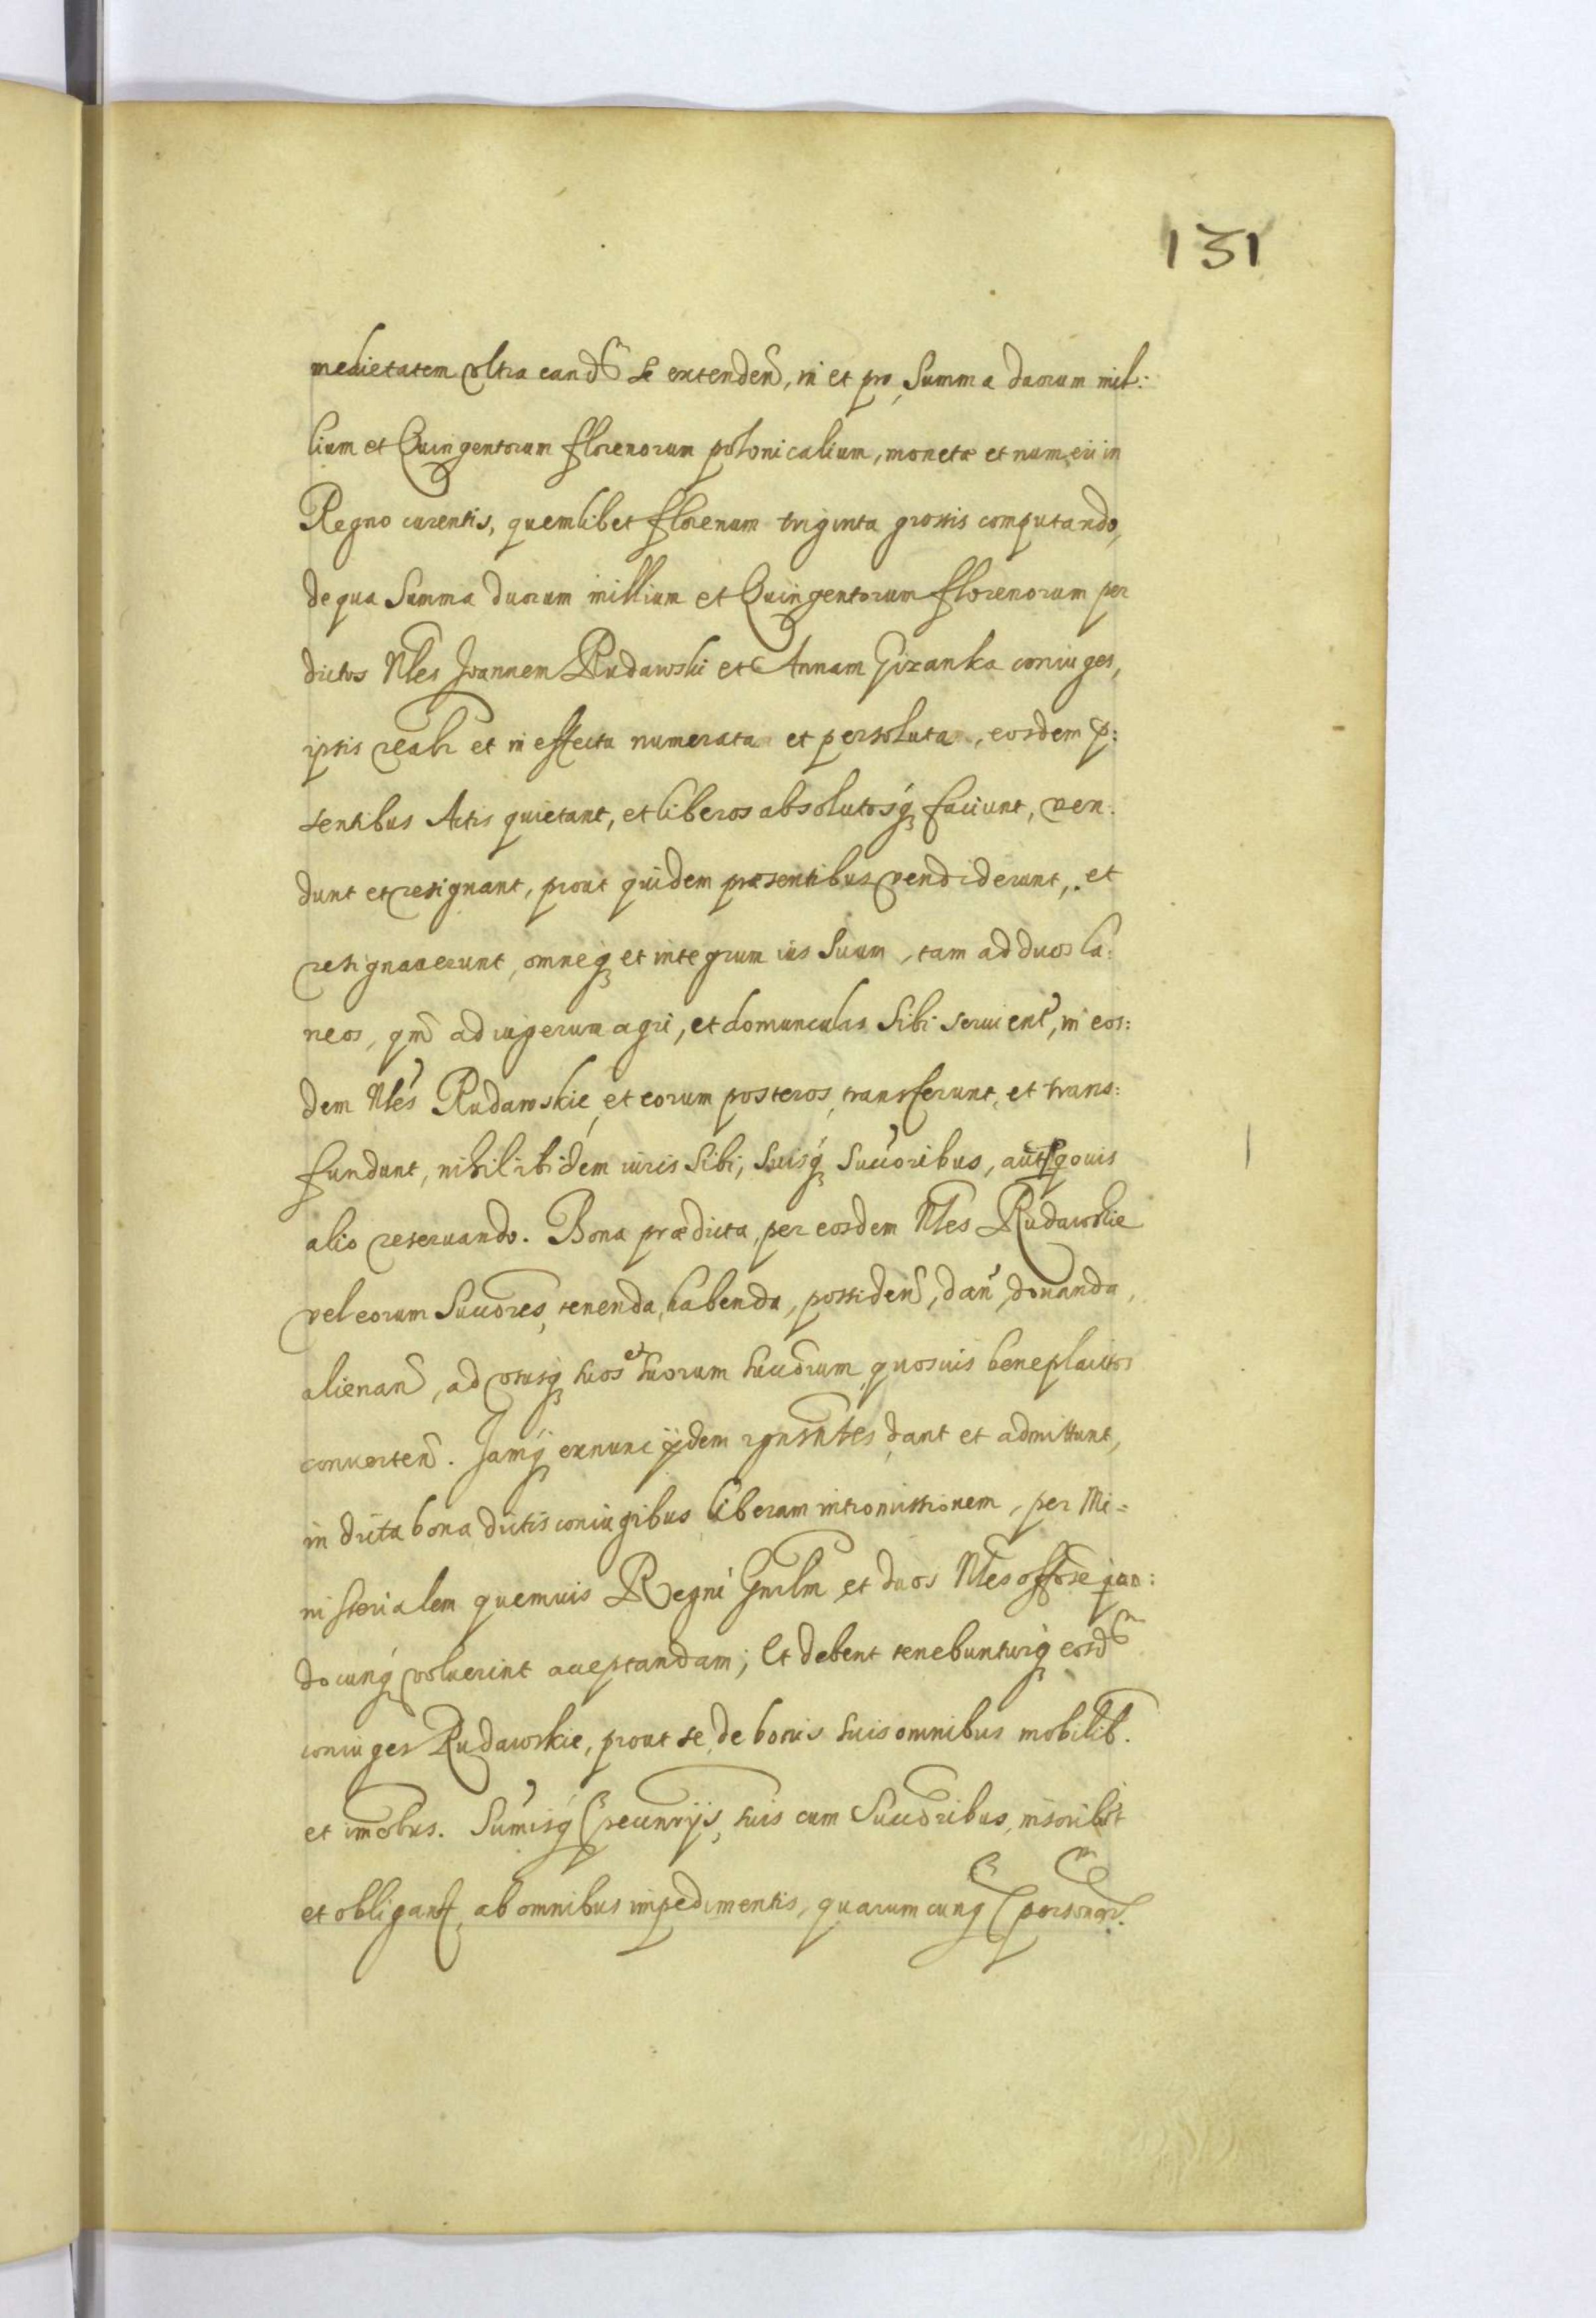 131
medietatem ultra eand͠ se extendeñ, in et pro, Summa duorum mil:
lium et Quingentorum florenorum polonicalium, monetæ et numeri in
Regno curentis, quemlibet florenum triginta grossis computando,
de qua Summa duorum millium et Quingentorum florenorum per
dictos Nles Joannem Rudawski et Annam Gizanka coniuges,
ipsis realr et in effectu numerata et persoluta, eosdem p:
sentibus Actis quietant, et liberos absolutosq́ faciunt, ven:
dunt et resignant, prout quidem præsentibus vendiderunt, et
resignauerunt, omneq et integrum ius Suum, tam ad duos la:
neos, qm̃ ad iugerum agri, et domunculas Sibi seruient, in eos:
dem Nles Rudawskie, et eorum posteros, transferunt, et trans:
fundunt, nihil ibidem iuris Sibi, Suisq́ Succoribus, aut quouis
alio reseruando. Bona prædicta, per eosdem Nles Rudawskie
vel eorum Succores, tenenda, habenda, possideñ, dañ, donanda,
alienañ, ad ususq suos et suorum succorum quosuis beneplacitos
conuerteñ. Jamq́ exnunc ijdem rgnsntes dant et admittunt,
in dicta bona dictis coniugibus liberam intromissionem, per Mi=
nisterialem quemuis Regni Gnrlm et duos Nles offore quan:
docunq́ voluerint acceptandam; Et debent tenebunturq́ eosd͠
coniuges Rudawskie, prout se, de bonis suis omnibus mobilib.
et imobus. Sumisq́ pecunrijs, suis cum Succoribus, inscribt
et obligant, ab omnibus impedimentis, quarumcunq personar.